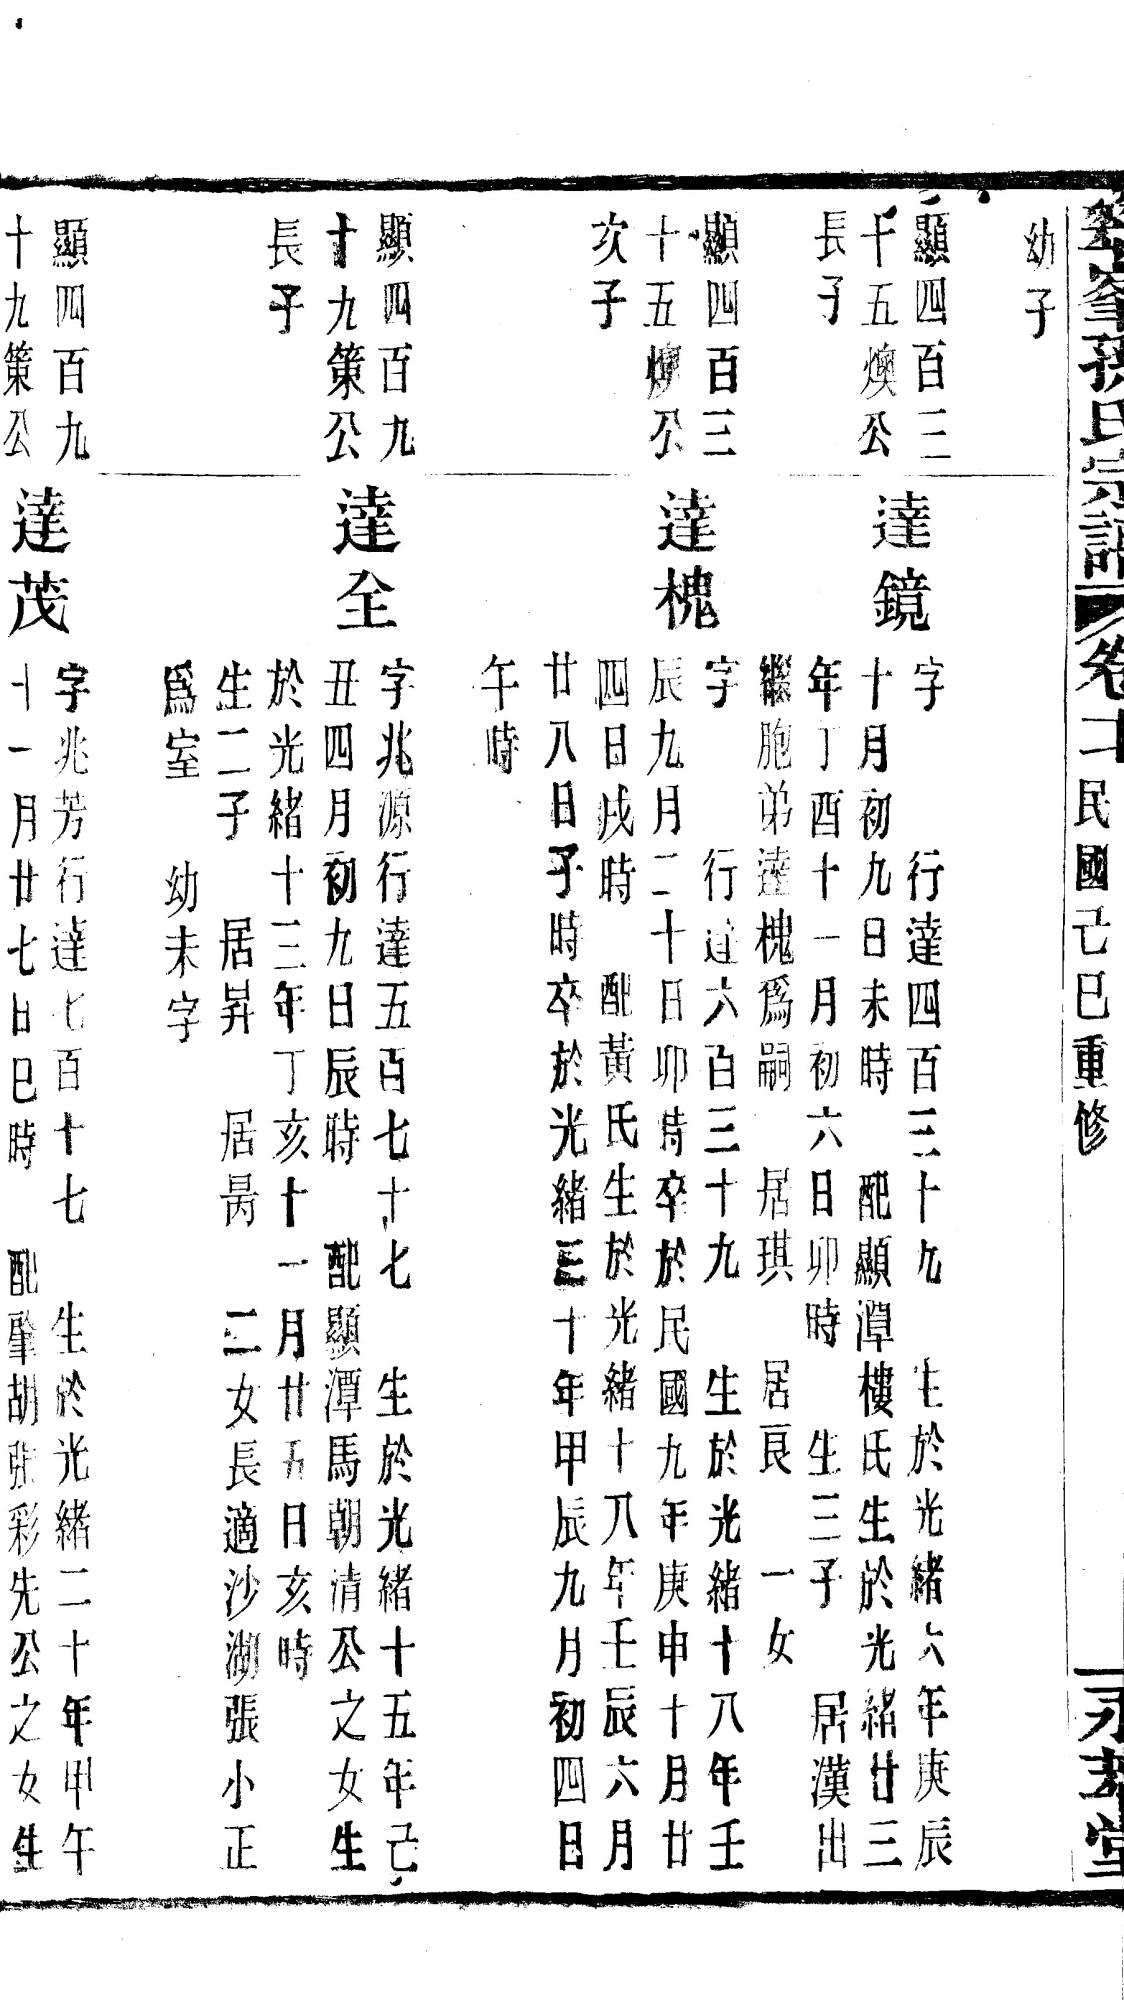 峯孫氏宗譜 卷十 民國己巳重修 永 堂
幼子
顯四百三
十五燠公
長子
達鏡
字 行達四百三十九 生於光緒六年庚辰
十月初九日未時 配顯潭樓氏生於光緒廿三
年丁酉十一月初六日卯時 生三子 居漢出
繼胞弟達槐爲嗣 居琪 居良 一女
顯四百三
十五燠公
次子
達槐
字 行達六百三十九 生於光緒十八年壬
辰九月二十日卯時卒於民國九年庚申十月廿
四日戌時 配黃氏生於光緒十八年壬辰六月
廿八日子時卒於光緒三十年甲辰九月初四日
午時
顯四百九
十九策公
長子
達全
字兆源行達五百七十七 生於光緒十五年己
丑四月初九日辰時 配顯潭馬朝清公之女生
於光緒十三年丁亥十一月廿五日亥時
生二子 居昇 居昺 二女長適沙湖張小正
爲室 幼未字
顯四百九
十九策公
達茂
字兆芳行達七百十七 生於光緒二十年甲午
十一月廿七日巳時 配肇胡張彩先公之女生